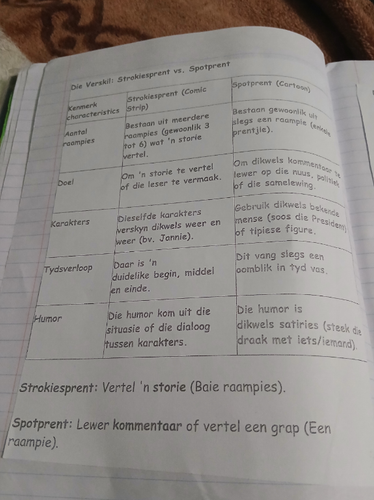 Die Verskil: Strokiesprent vs. Spotprent
Kenmerk
characteristics
Strokiesprent (Comic
Strip)
Spotprent (Cartoon)
Aantal
raampies
Bestaan uit meerdere
raampies (gewoonlik 3
tot 6) wat 'n storie
vertel.
Bestaan gewoonlik uit
slegs een raampie (enkele
prentjie).
Doel
Om 'n storie te vertel
of die leser te vermaak.
Om dikwels kommentaar te
lewer op die nuus, politiek
of die samelewing.
Karakters
Dieselfde karakters
verskyn dikwels weer en
weer (bv. Jannie).
Gebruik dikwels bekende
mense (soos die President)
of tipiese figure.
Tydsverloop
Daar is 'n
duidelike begin, middel
en einde.
Dit vang slegs een
oomblik in tyd vas.
Humor
Die humor kom uit die
situasie of die dialoog
tussen karakters.
Die humor is
dikwels satiries (steek die
draak met iets/iemand).
Strokiesprent: Vertel 'n storie (Baie raampies).
Spotprent: Lewer kommentaar of vertel een grap (Een
raampie).